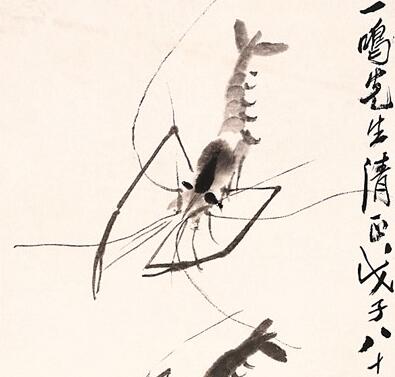 一鳴先生清正戊子八十